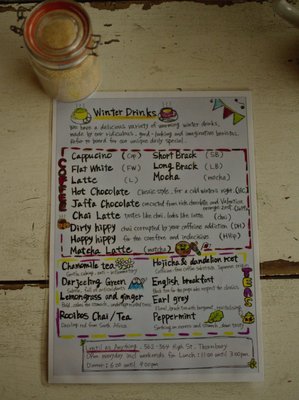 Winter Drinks
We have a delicious variety of warming winter drinks,
made by our ridiculous, good-looking and imaginative baristas.
Refer to board for our unique daily special.
COFFEE
Cappucino (Cap) Short Black (SB)
Flat White (FW) Long Black (LB)
Latte (L) Mocha (mocha)
Hot Chocolate Classic style, for a cold winters night (HC)
Jaffa Chocolate
Chai Latte tastes like chai, looks like latte (chai)
Dirty hippy chai corrupted by your caffeine addiction (DH)
Happy hippy for the carefree and indecisive
Matcha Latte (matcha)
TEAS
Chamomile tea Hojicha & dandelion root
Darjeeling Green English breakfast
Lemongrass and ginger Earl grey
Rooibos Chai / Tea Peppermint
Dazzling red from South Africa
562-564 High St, Thornbury
Open everyday and weekends for Lunch: 11:00 until 3:00pm
Dinner: 6:00 until 9:00pm